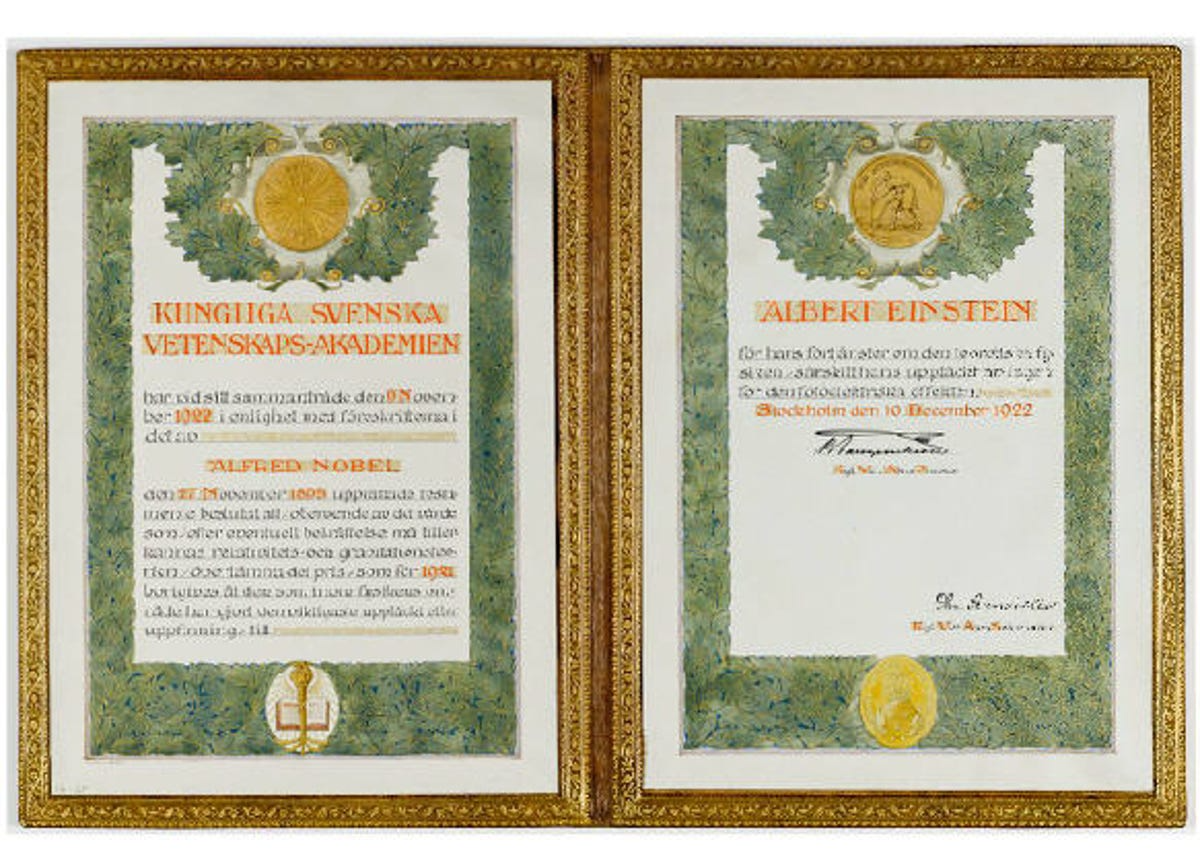 KUNGLIGA SVENSKA
VETENSKAPS-AKADEMIEN
har vid sitt sammanträde den 9 Novem-
ber 1922 i enlighet med föreskrifterna i
det av
ALFRED NOBEL
den 27 November 1895 upprättade testa-
mente beslutat att, oberoende av det värde
som, efter eventuell bekräftelse må tiller-
kännas relativitets- och gravitationsteo-
rien, överlämna det pris, som för 1921
bortgives åt den, som inom fysikens om-
råde har gjort den viktigaste upptäckt eller
uppfinning, till
ALBERT EINSTEIN
för hans förtjänster om den teoretiska fy-
siken, särskilt hans upptäckt av lagen
för den fotoelektriska effekten
Stockholm den 10 December 1922